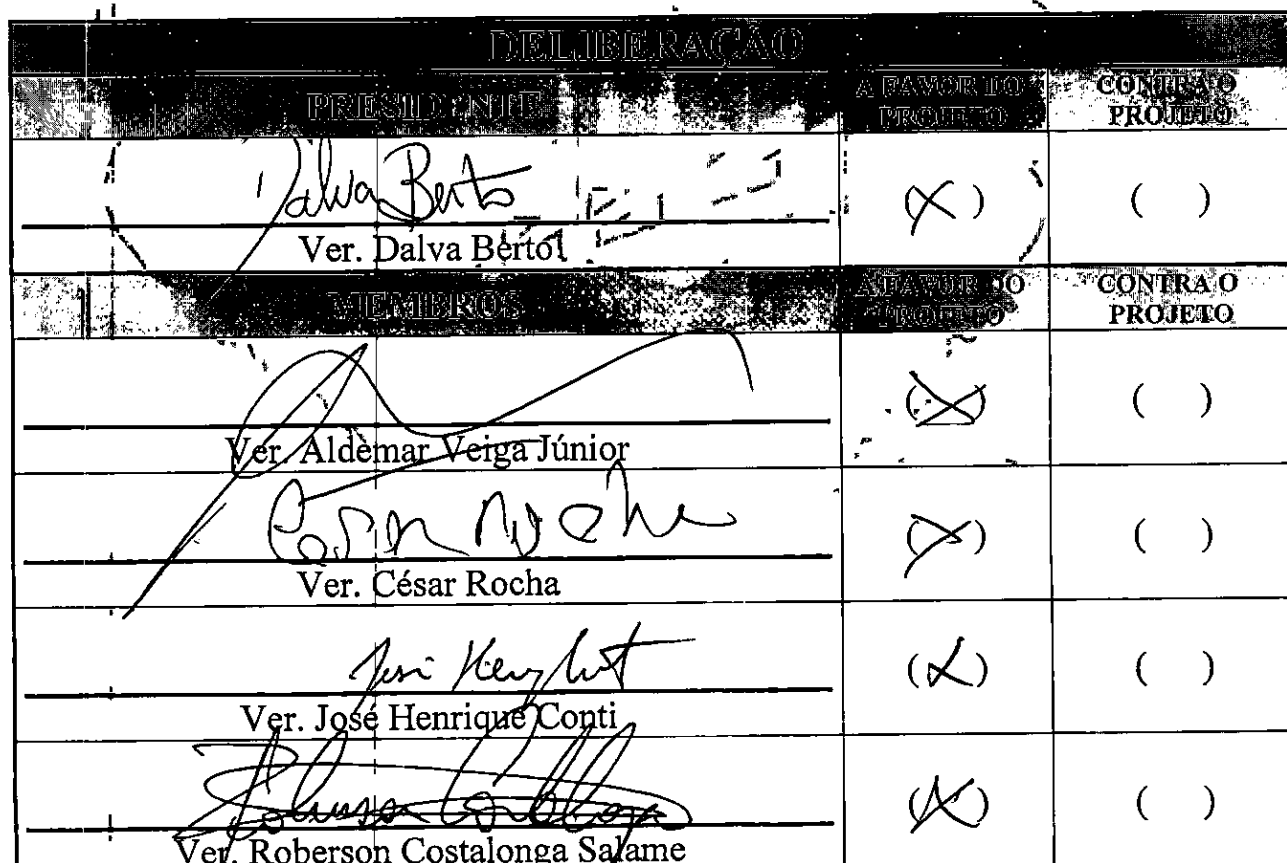 DELIBERAÇÃO
PRESIDENTE
A FAVOR DO PROJETO
CONTRA O PROJETO
Dalva Berto
Ver. Dalva Berto
(X) ( )
MEMBROS
A FAVOR DO PROJETO
CONTRA O PROJETO
Ver. Aldemar Veiga Júnior
(X) ( )
César Rocha
Ver. César Rocha
(X) ( )
Ver. José Henrique Conti
(X) ( )
Ver. Roberson Costalonga Salame
(X) ( )